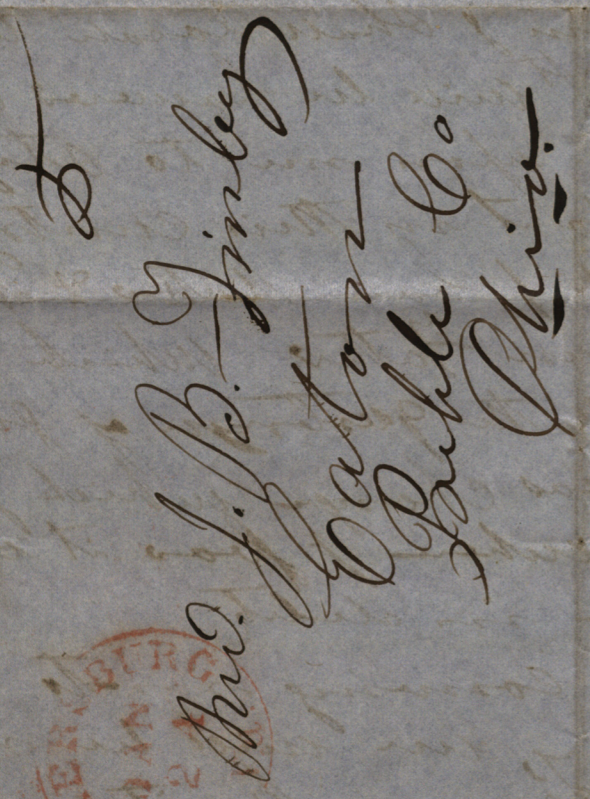 5
Mrs. J. B. Finley
Eaton
Preble Co
Ohio.
BURG
JAN